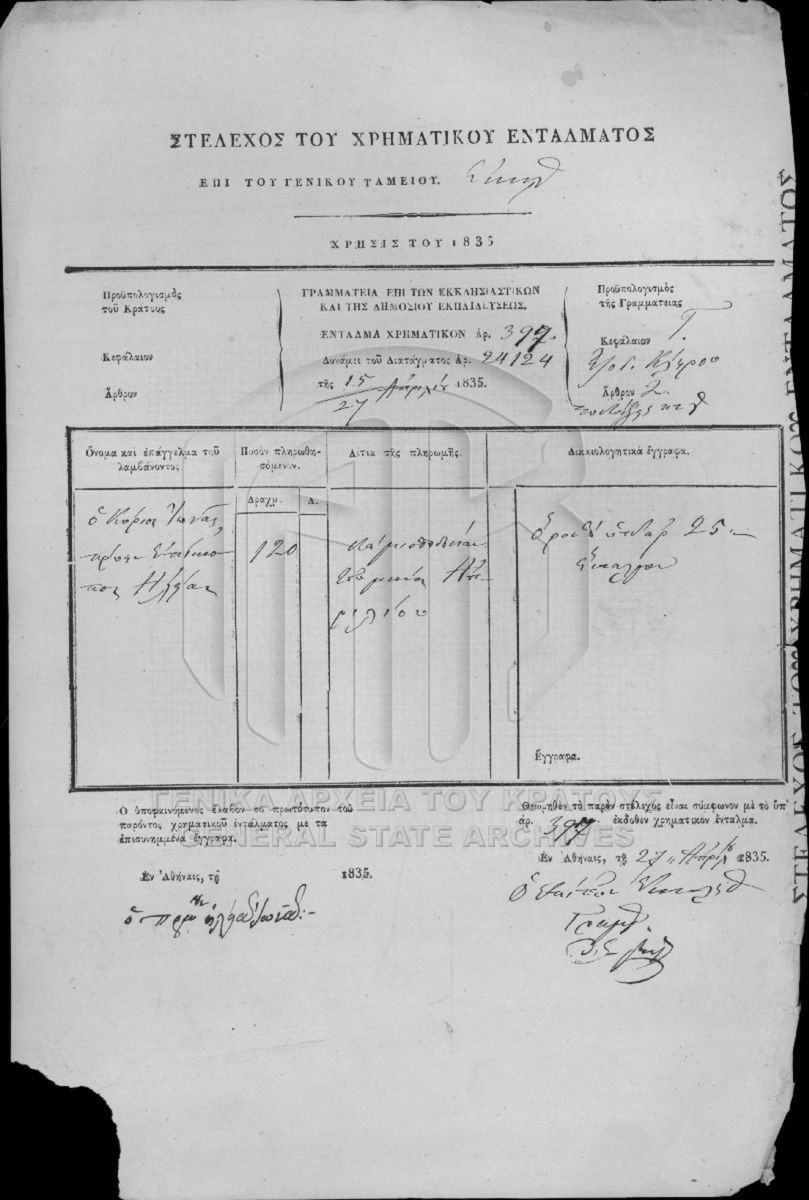 ΣΤΕΛΕΧΟΣ ΤΟΥ ΧΡΗΜΑΤΙΚΟΥ ΕΝΤΑΛΜΑΤΟΣ
ΕΠΙ ΤΟΥ ΓΕΝΙΚΟΥ ΤΑΜΕΙΟΥ.
ΧΡΗΣΙΣ ΤΟΥ 1835
Προϋπολογισμὸς
τοῦ Κράτους
Κεφάλαιον
Ἄρθρον
ΓΡΑΜΜΑΤΕΙΑ ΕΠΙ ΤΩΝ ΕΚΚΛΗΣΙΑΣΤΙΚΩΝ
ΚΑΙ ΤΗΣ ΔΗΜΟΣΙΟΥ ΕΚΠΑΙΔΕΥΣΕΩΣ.
ΕΝΤΑΛΜΑ ΧΡΗΜΑΤΙΚΟΝ ἀρ. 397.
Δυνάμει τοῦ Διατάγματος Ἀρ. 24124
τῆς 15/27 Ἀπριλίου 1835.
Προϋπολογισμὸς
τῆς Γραμματείας
Κεφάλαιον Γ.
Ἔξοδ. Κλήρου
Ἄρθρον 2.
Ὄνομα καὶ ἐπάγγελμα τοῦ
λαμβάνοντος
Ποσὸν πληρωθη-
σόμενον.
Αἰτία τῆς πληρωμῆς.
Δικαιολογητικὰ ἔγγραφα.
Δραχμ. Λ.
ὁ Κύριος Ἰωνᾶς
πρώην Ἐπίσκο
πος
120
τοῦ μηνὸς Ἀπ
ριλίου
25
Ἔγγραφα.
Ὁ ὑποφαινόμενος ἔλαβον τὸ πρωτότυπον τοῦ
παρόντος χρηματικοῦ ἐντάλματος μὲ τὰ
ἐπισυνημμένα ἔγγραφα.
Ἐν Ἀθήναις, τῇ 1835.
Θεωρηθὲν τὸ παρὸν στέλεχος εἶναι σύμφωνον μὲ τὸ ὑπ'
ἀρ. 397 ἐκδοθὲν χρηματικὸν ἔνταλμα.
Ἐν Ἀθήναις, τῇ 27 Ἀπριλ 1835.
ΓΕΝΙΚΑ ΑΡΧΕΙΑ ΤΟΥ ΚΡΑΤΟΥΣ
GENERAL STATE ARCHIVES
ΣΤΕΛΕΧΟΣ ΤΟΥ ΧΡΗΜΑΤΙΚΟΥ ΕΝΤΑΛΜΑΤΟΣ